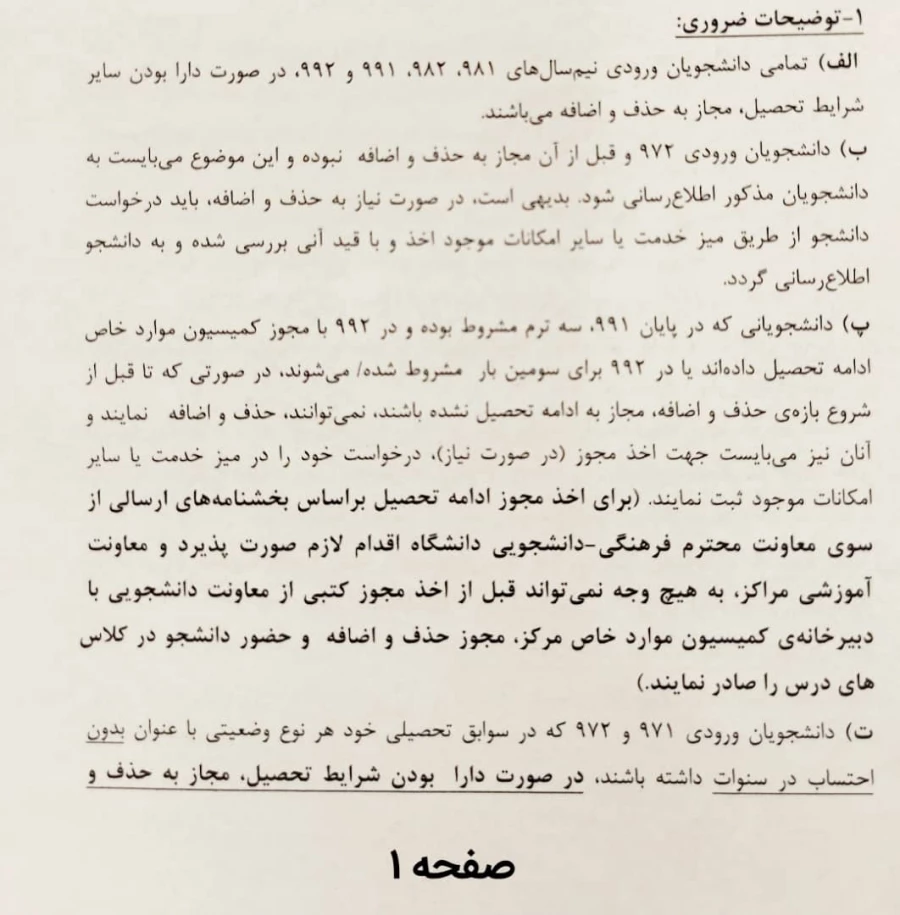 ۱-توضیحات ضروری:
الف) تمامی دانشجویان ورودی نیم‌سال‌های ۹۸۱، ۹۸۲، ۹۹۱ و ۹۹۲، در صورت دارا بودن سایر
شرایط تحصیل، مجاز به حذف و اضافه می‌باشند.
ب) دانشجویان ورودی ۹۷۲ و قبل از آن مجاز به حذف و اضافه نبوده و این موضوع می‌بایست به
دانشجویان مذکور اطلاع‌رسانی شود. بدیهی است، در صورت نیاز به حذف و اضافه، باید درخواست
دانشجو از طریق میز خدمت یا سایر امکانات موجود اخذ و با قید آنی بررسی شده و به دانشجو
اطلاع‌رسانی گردد.
پ) دانشجویانی که در پایان ۹۹۱، سه ترم مشروط بوده و در ۹۹۲ با مجوز کمیسیون موارد خاص
ادامه تحصیل داده‌اند یا در ۹۹۲ برای سومین بار مشروط شده/ می‌شوند، در صورتی که تا قبل از
شروع بازه‌ی حذف و اضافه، مجاز به ادامه تحصیل نشده باشند، نمی‌توانند، حذف و اضافه نمایند و
آنان نیز می‌بایست جهت اخذ مجوز (در صورت نیاز)، درخواست خود را در میز خدمت یا سایر
امکانات موجود ثبت نمایند. (برای اخذ مجوز ادامه تحصیل براساس بخشنامه‌های ارسالی از
سوی معاونت محترم فرهنگی-دانشجویی دانشگاه اقدام لازم صورت پذیرد و معاونت
آموزشی مراکز، به هیچ وجه نمی‌تواند قبل از اخذ مجوز کتبی از معاونت دانشجویی با
دبیرخانه‌ی کمیسیون موارد خاص مرکز، مجوز حذف و اضافه و حضور دانشجو در کلاس
های درس را صادر نمایند.)
ت) دانشجویان ورودی ۹۷۱ و ۹۷۲ که در سوابق تحصیلی خود هر نوع وضعیتی با عنوان بدون
احتساب در سنوات داشته باشند، در صورت دارا بودن شرایط تحصیل، مجاز به حذف و
صفحه ۱